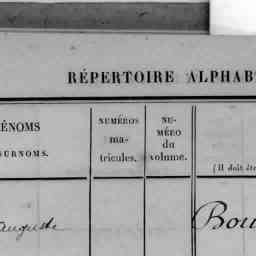 RÉPERTOIRE ALPHAB
ÉNOMS
SURNOMS.
NUMÉROS
ma-
tricules.
NU-
MÉRO
du
volume.
(Il doit êtr
auguste
Bou